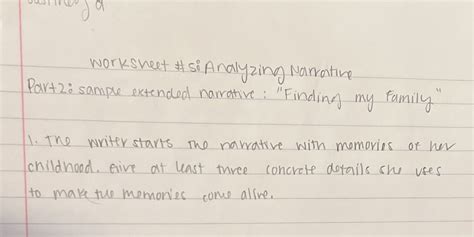 Worksheet #5: Analyzing Narrative
Part 2: sample extended narrative: "Finding my Family"
1. The writer starts the narrative with memories of her
childhood. Give at least three concrete details she uses
to make the memories come alive.